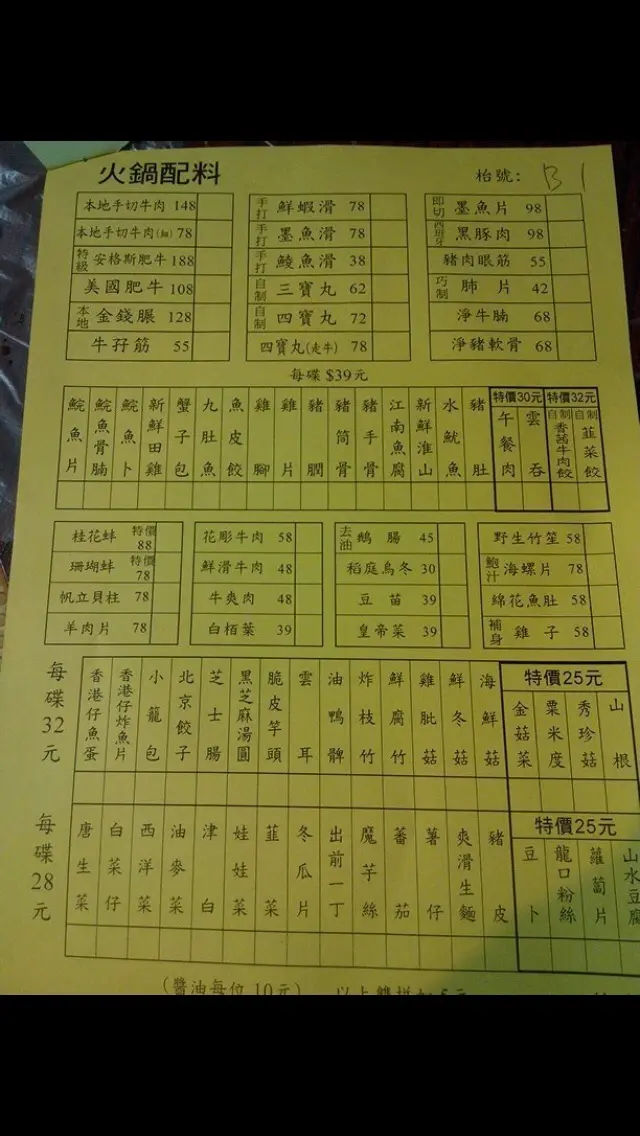 火鍋配料 枱號: B 1
本地手切牛肉 148 手打 鮮蝦滑 78 即切 墨魚片 98
本地手切牛肉(細) 78 手打 墨魚滑 78 西班牙 黑豚肉 98
特級 安格斯肥牛 188 手打 鯪魚滑 38 豬肉眼筋 55
美國肥牛 108 自制 三寶丸 62 巧制 肺片 42
本地 金錢𦟌 128 自制 四寶丸 72 淨牛腩 68
牛孖筋 55 四寶丸(走牛) 78 淨豬軟骨 68
每碟 $39元
鯇魚片 鯇魚骨腩 鯇魚卜 新鮮田雞 蟹子包 九肚魚 魚皮餃 雞腳 雞片 豬膶 豬筒骨 豬手骨 江南魚腐 新鮮淮山 水魷魚 豬肚
特價30元 特價32元
午餐肉 雲吞 自制香茜牛肉餃 自制韮菜餃
桂花蚌 特價88 花彫牛肉 58 去油 鵝腸 45 野生竹笙 58
珊瑚蚌 特價78 鮮滑牛肉 48 稻庭烏冬 30 鮑汁 海螺片 78
帆立貝柱 78 牛爽肉 48 豆苗 39 綿花魚肚 58
羊肉片 78 白栢葉 39 皇帝菜 39 補身 雞子 58
每碟32元
香港仔魚蛋 香港仔炸魚片 小籠包 北京餃子 芝士腸 黑芝麻湯圓 脆皮竽頭 雲耳 油鴨髀 炸枝竹 鮮腐竹 雞肶菇 鮮冬菇 海鮮菇
特價25元
金菇菜 粟米度 秀珍菇 山根
每碟28元
唐生菜 白菜仔 西洋菜 油麥菜 津白 娃娃菜 韮菜 冬瓜片 出前一丁 魔芋絲 蕃茄 薯仔 爽滑生麵 豬皮
特價25元
豆卜 龍口粉絲 蘿蔔片 山水豆腐
(醬油每位 10元) 以上雙拼加5元